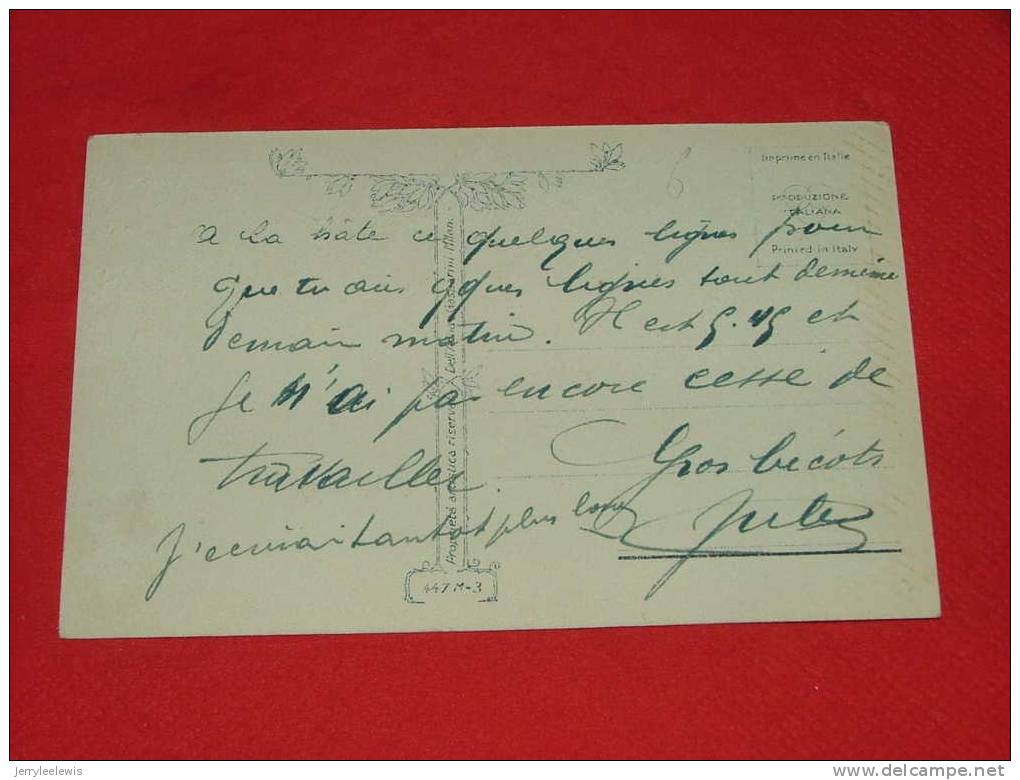 Imprimé en Italie
PRODUZIONE
ITALIANA
Printed in Italy
6
a la hâte ces quelques lignes pour
que tu ais qques lignes tout de même
demain matin. Il est 5.45 et
je n'ai pas encore cessé de
travailler. Gros bécots
J'écrirai tantôt plus long Jules
Proprietà artistica riservata Dell'Anna & Gasparini Milan
447 M-3
jerryleelewis
www.delcampe.net